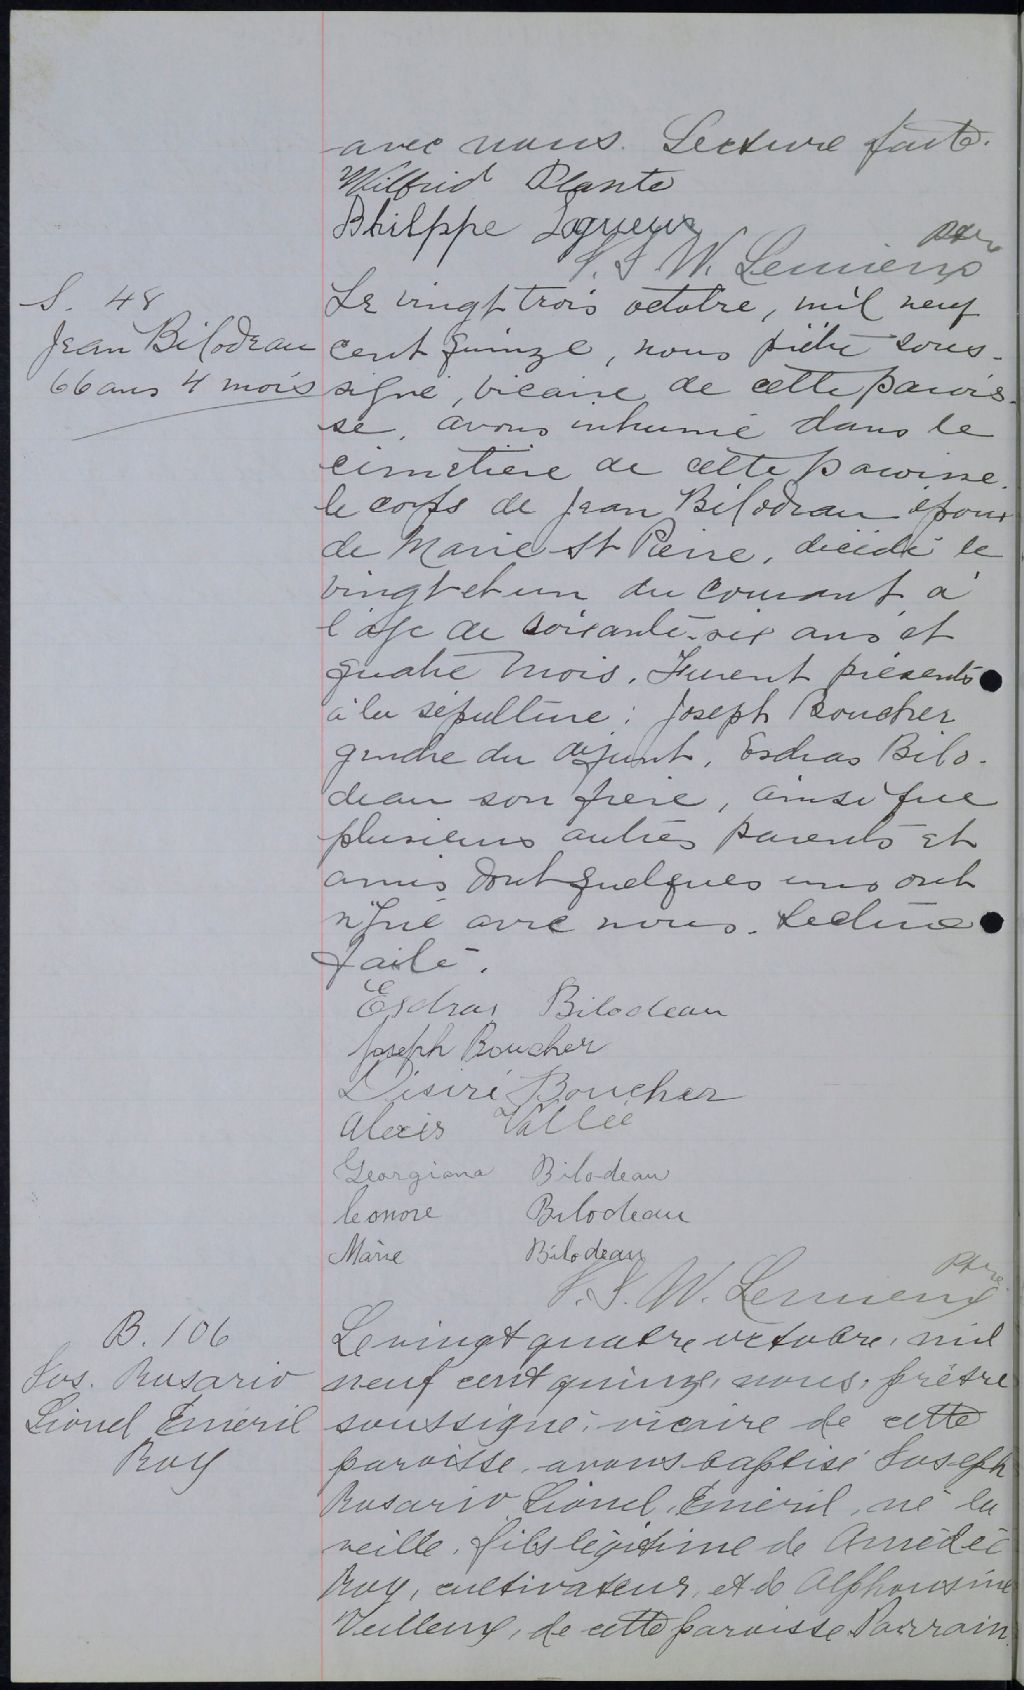 avec nous. Lecture faite.
Wilfrid Plante
Philppe Lqueux
P.J.W. Lemieux Ptre
S. 48
Jean Bilodeau
66 ans 4 mois
Le vingt trois octobre, mil neuf
cent quinze, nous prêtre sous-
signé, vicaire de cette parois-
se, avons inhumé dans le
cimetière de cette paroisse
le corps de Jean Bilodeau époux
de Marie St Pierre, décédé le
vingt et un du courant à
l'âge de soixante-six ans et
quatre mois. Furent présents
à la sépulture: Joseph Boucher
gendre du défunt, Esdras Bilo-
deau son frère, ainsi que
plusieurs autres parents et
amis dont quelques uns ont
signé avec nous. Lecture
faite.
Esdras Bilodeau
Joseph Boucher
Désiré Boucher
Alexis Vallée
Georgiana Bilodeau
Leonore Bilodeau
Marie Bilodeau
J.W. Lemieux Ptre
B. 106
Jos. Rosario
Lionel Eméril
Roy
Le vingt quatre octobre, mil
neuf cent quinze, nous, prêtre
soussigné, vicaire de cette
paroisse, avons baptisé Joseph
Rosario Lionel Eméril, né la
veille, fils légitime de Amédée
Roy, cultivateur, et de Alphonsine
Veilleux, de cette paroisse. Parrain